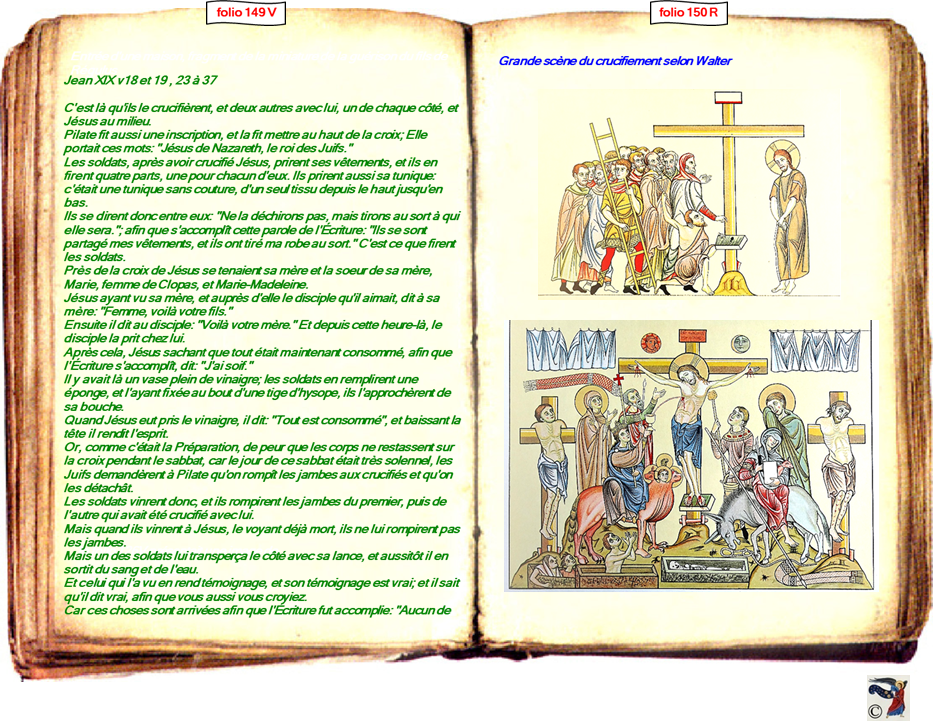 folio 149 V
Jean XIX v18 et 19 , 23 à 37
C'est là qu'ils le crucifièrent, et deux autres avec lui, un de chaque côté, et
Jésus au milieu.
Pilate fit aussi une inscription, et la fit mettre au haut de la croix; Elle
portait ces mots: "Jésus de Nazareth, le roi des Juifs."
Les soldats, après avoir crucifié Jésus, prirent ses vêtements, et ils en
firent quatre parts, une pour chacun d'eux. Ils prirent aussi sa tunique:
c'était une tunique sans couture, d'un seul tissu depuis le haut jusqu'en
bas.
Ils se dirent donc entre eux: "Ne la déchirons pas, mais tirons au sort à qui
elle sera."; afin que s'accomplît cette parole de l'Écriture: "Ils se sont
partagé mes vêtements, et ils ont tiré ma robe au sort." C'est ce que firent
les soldats.
Près de la croix de Jésus se tenaient sa mère et la soeur de sa mère,
Marie, femme de Clopas, et Marie-Madeleine.
Jésus ayant vu sa mère, et auprès d'elle le disciple qu'il aimait, dit à sa
mère: "Femme, voilà votre fils."
Ensuite il dit au disciple: "Voilà votre mère." Et depuis cette heure-là, le
disciple la prit chez lui.
Après cela, Jésus sachant que tout était maintenant consommé, afin que
l'Écriture s'accomplît, dit: "J'ai soif."
Il y avait là un vase plein de vinaigre; les soldats en remplirent une
éponge, et l'ayant fixée au bout d'une tige d'hysope, ils l'approchèrent de
sa bouche.
Quand Jésus eut pris le vinaigre, il dit: "Tout est consommé", et baissant la
tête il rendit l'esprit.
Or, comme c'était la Préparation, de peur que les corps ne restassent sur
la croix pendant le sabbat, car le jour de ce sabbat était très solennel, les
Juifs demandèrent à Pilate qu'on rompît les jambes aux crucifiés et qu'on
les détachât.
Les soldats vinrent donc, et ils rompirent les jambes du premier, puis de
l'autre qui avait été crucifié avec lui.
Mais quand ils vinrent à Jésus, le voyant déjà mort, ils ne lui rompirent pas
les jambes.
Mais un des soldats lui transperça le côté avec sa lance, et aussitôt il en
sortit du sang et de l'eau.
Et celui qui l'a vu en rend témoignage, et son témoignage est vrai; et il sait
qu'il dit vrai, afin que vous aussi vous croyiez.
Car ces choses sont arrivées afin que l'Écriture fut accomplie: "Aucun de
folio 150 R
Grande scène du crucifiement selon Walter
©